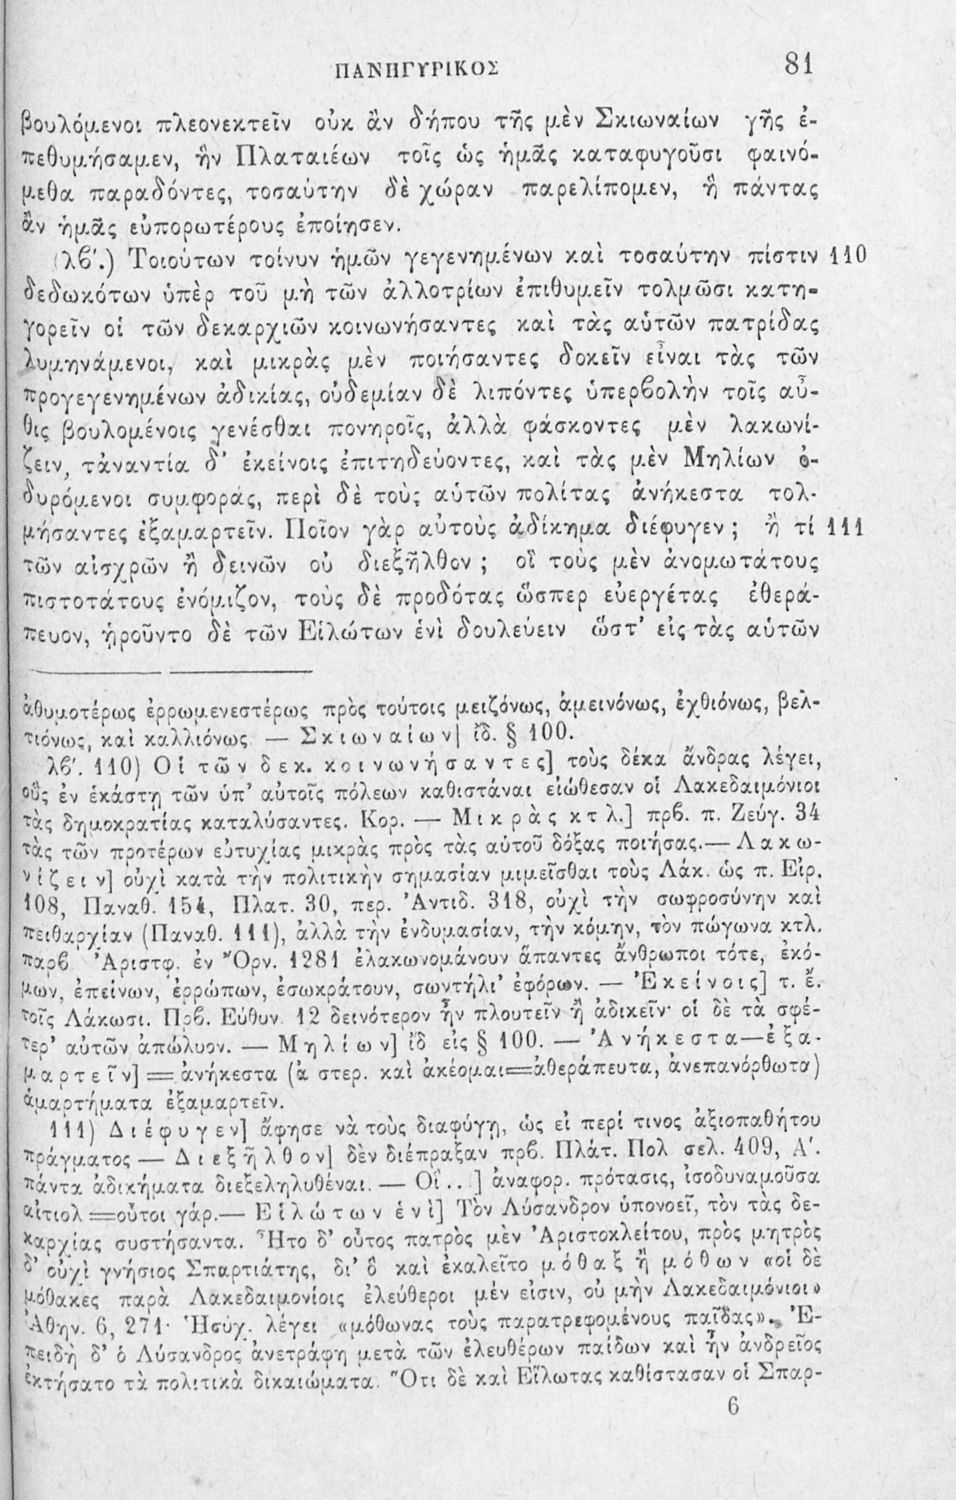 ΠΑΝΗΓΥΡΙΚΟΣ 81
βουλόμενοι πλεονεκτεῖν οὐκ ἂν δήπου τῆς μὲν Σκιωναίων γῆς ἐ-
πεθυμήσαμεν, ἣν Πλαταιέων τοῖς ὡς ἡμᾶς καταφυγοῦσι φαινό-
μεθα παραδόντες, τοσαύτην δὲ χώραν παρελίπομεν, ἣ πάντας
ἂν ἡμᾶς εὐπορωτέρους ἐποίησεν.
(λϐ΄.) Τοιούτων τοίνυν ἡμῶν γεγενημένων καὶ τοσαύτην πίστιν 110
δεδωκότων ὑπὲρ τοῦ μὴ τῶν ἀλλοτρίων ἐπιθυμεῖν τολμῶσι κατη-
γορεῖν οἱ τῶν δεκαρχιῶν κοινωνήσαντες καὶ τὰς αὑτῶν πατρίδας
λυμηνάμενοι, καὶ μικρὰς μὲν ποιήσαντες δοκεῖν εἶναι τὰς τῶν
προγεγενημένων ἀδικίας, οὐδεμίαν δὲ λιπόντες ὑπερϐολὴν τοῖς αὖ-
θις βουλομένοις γενέσθαι πονηροῖς, ἀλλὰ φάσκοντες μὲν λακωνί-
ζειν, τἀναντία δ' ἐκείνοις ἐπιτηδεύοντες, καὶ τὰς μὲν Μηλίων ὀ-
δυρόμενοι συμφοράς, περὶ δὲ τοὺς αὑτῶν πολίτας ἀνήκεστα τολ-
μήσαντες ἐξαμαρτεῖν. Ποῖον γὰρ αὐτοὺς ἀδίκημα διέφυγεν ; ἢ τί 111
τῶν αἰσχρῶν ἢ δεινῶν οὐ διεξῆλθον ; οἳ τοὺς μὲν ἀνομωτάτους
πιστοτάτους ἐνόμιζον, τοὺς δὲ προδότας ὥσπερ εὐεργέτας ἐθερά-
πευον, ᾑροῦντο δὲ τῶν Εἱλώτων ἑνὶ δουλεύειν ὥστ' εἰς τὰς αὑτῶν
ἀθυμοτέρως ἐρρωμενεστέρως πρὸς τούτοις μειζόνως, ἀμεινόνως, ἐχθιόνως, βελ-
τιόνως, καὶ καλλιόνως. — Σκιωναίων] ἴδ. § 100.
λϐ΄. 110) Οἱ τῶν δεκ. κοινωνήσαντες] τοὺς δέκα ἄνδρας λέγει,
οὓς ἐν ἑκάστῃ τῶν ὑπ' αὐτοῖς πόλεων καθιστάναι εἰώθεσαν οἱ Λακεδαιμόνιοι
τὰς δημοκρατίας καταλύσαντες. Κορ. — Μικρὰς κτλ.] πρϐ. π. Ζεύγ. 34
τὰς τῶν προτέρων εὐτυχίας μικρὰς πρὸς τὰς αὑτοῦ δόξας ποιήσας.— Λακω-
νίζειν] οὐχὶ κατὰ τὴν πολιτικὴν σημασίαν μιμεῖσθαι τοὺς Λάκ. ὡς π. Εἰρ.
108, Παναθ. 154, Πλατ. 30, περ. Ἀντιδ. 318, οὐχὶ τὴν σωφροσύνην καὶ
πειθαρχίαν (Παναθ. 111), ἀλλὰ τὴν ἐνδυμασίαν, τὴν κόμην, τὸν πώγωνα κτλ.
παρϐ Ἀριστφ. ἐν Ὄρν. 1281 ἐλακωνομάνουν ἅπαντες ἄνθρωποι τότε, ἐκό-
μων, ἐπείνων, ἐρρώπων, ἐσωκράτουν, σωντήλι' ἐφόρων. — Ἐκείνοις] τ. ἔ.
τοῖς Λάκωσι. Πρϐ. Εὐθυν. 12 δεινότερον ἦν πλουτεῖν ἢ ἀδικεῖν· οἱ δὲ τὰ σφέ-
τερ' αὐτῶν ἀπώλυον. — Μηλίων] ἴδ εἰς § 100. — Ἀνήκεστα—ἐξα-
μαρτεῖν] = ἀνήκεστα (ἀ στερ. καὶ ἀκέομαι=ἀθεράπευτα, ἀνεπανόρθωτα)
ἁμαρτήματα ἐξαμαρτεῖν.
111) Διέφυγεν] ἄφησε νὰ τοὺς διαφύγῃ, ὡς εἰ περί τινος ἀξιοπαθήτου
πράγματος — Διεξῆλθον] δὲν διέπραξαν πρϐ. Πλάτ. Πολ σελ. 409, Α΄.
πάντα ἀδικήματα διεξεληλυθέναι. — Οἵ..] ἀναφορ. πρότασις, ἰσοδυναμοῦσα
αἰτιολ =οὗτοι γάρ.— Εἱλώτων ἑνὶ] Τὸν Λύσανδρον ὑπονοεῖ, τὸν τὰς δε-
καρχίας συστήσαντα. Ἦτο δ' οὗτος πατρὸς μὲν Ἀριστοκλείτου, πρὸς μητρὸς
δ' οὐχὶ γνήσιος Σπαρτιάτης, δι' ὃ καὶ ἐκαλεῖτο μόθαξ ἢ μόθων «οἱ δὲ
μόθακες παρὰ Λακεδαιμονίοις ἐλεύθεροι μέν εἰσιν, οὐ μὴν Λακεδαιμόνιοι»
Ἀθην. 6, 271· Ἡσύχ. λέγει «μόθωνας τοὺς παρατρεφομένους παῖδας». Ἐ-
πειδὴ δ' ὁ Λύσανδρος ἀνετράφη μετὰ τῶν ἐλευθέρων παίδων καὶ ἦν ἀνδρεῖος
ἐκτήσατο τὰ πολιτικὰ δικαιώματα. Ὅτι δὲ καὶ Εἵλωτας καθίστασαν οἱ Σπαρ-
6